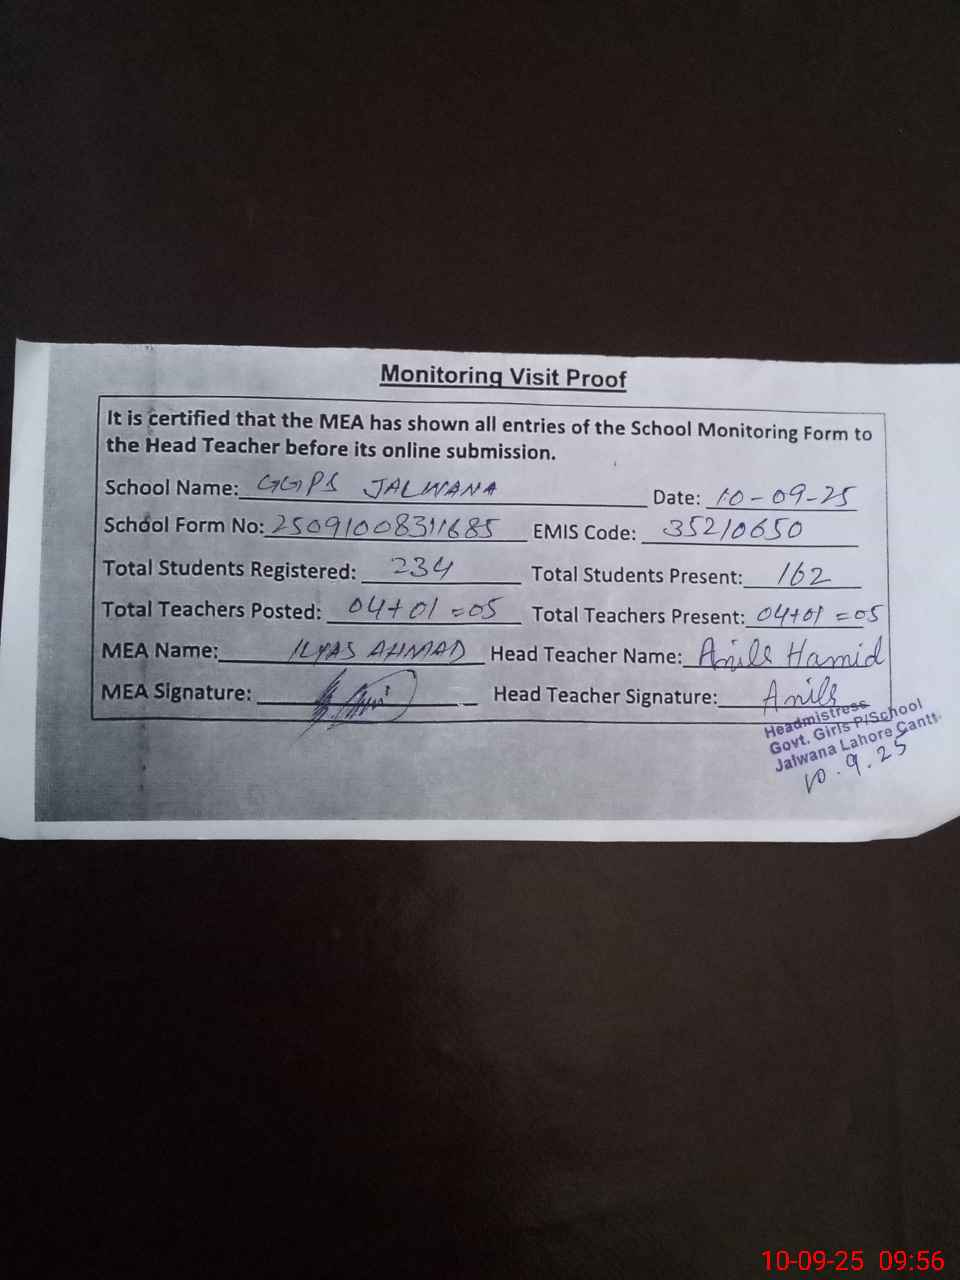 Monitoring Visit Proof
It is certified that the MEA has shown all entries of the School Monitoring Form to
the Head Teacher before its online submission.
School Name: GGPS JALWANA Date: 10-09-25
School Form No: 25091008311685 EMIS Code: 35210650
Total Students Registered: 234 Total Students Present: 162
Total Teachers Posted: 04+01=05 Total Teachers Present: 04+01=05
MEA Name: ILYAS AHMAD Head Teacher Name: Anila Hamid
MEA Signature: Head Teacher Signature: Anila
Headmistress
Govt. Girls P/School
Jalwana Lahore Cantt.
10.9.25
10-09-25 09:56